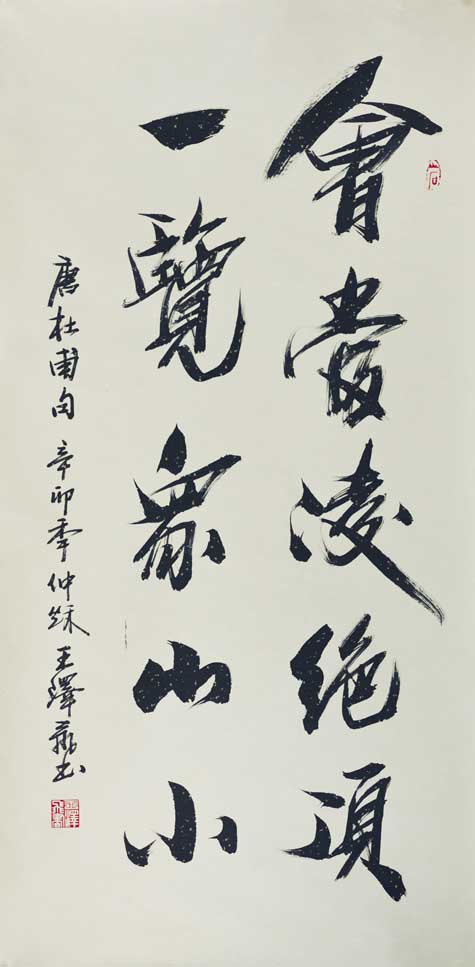 會當凌絕頂
一覽眾山小
唐杜甫句 辛卯年仲秋 王澤